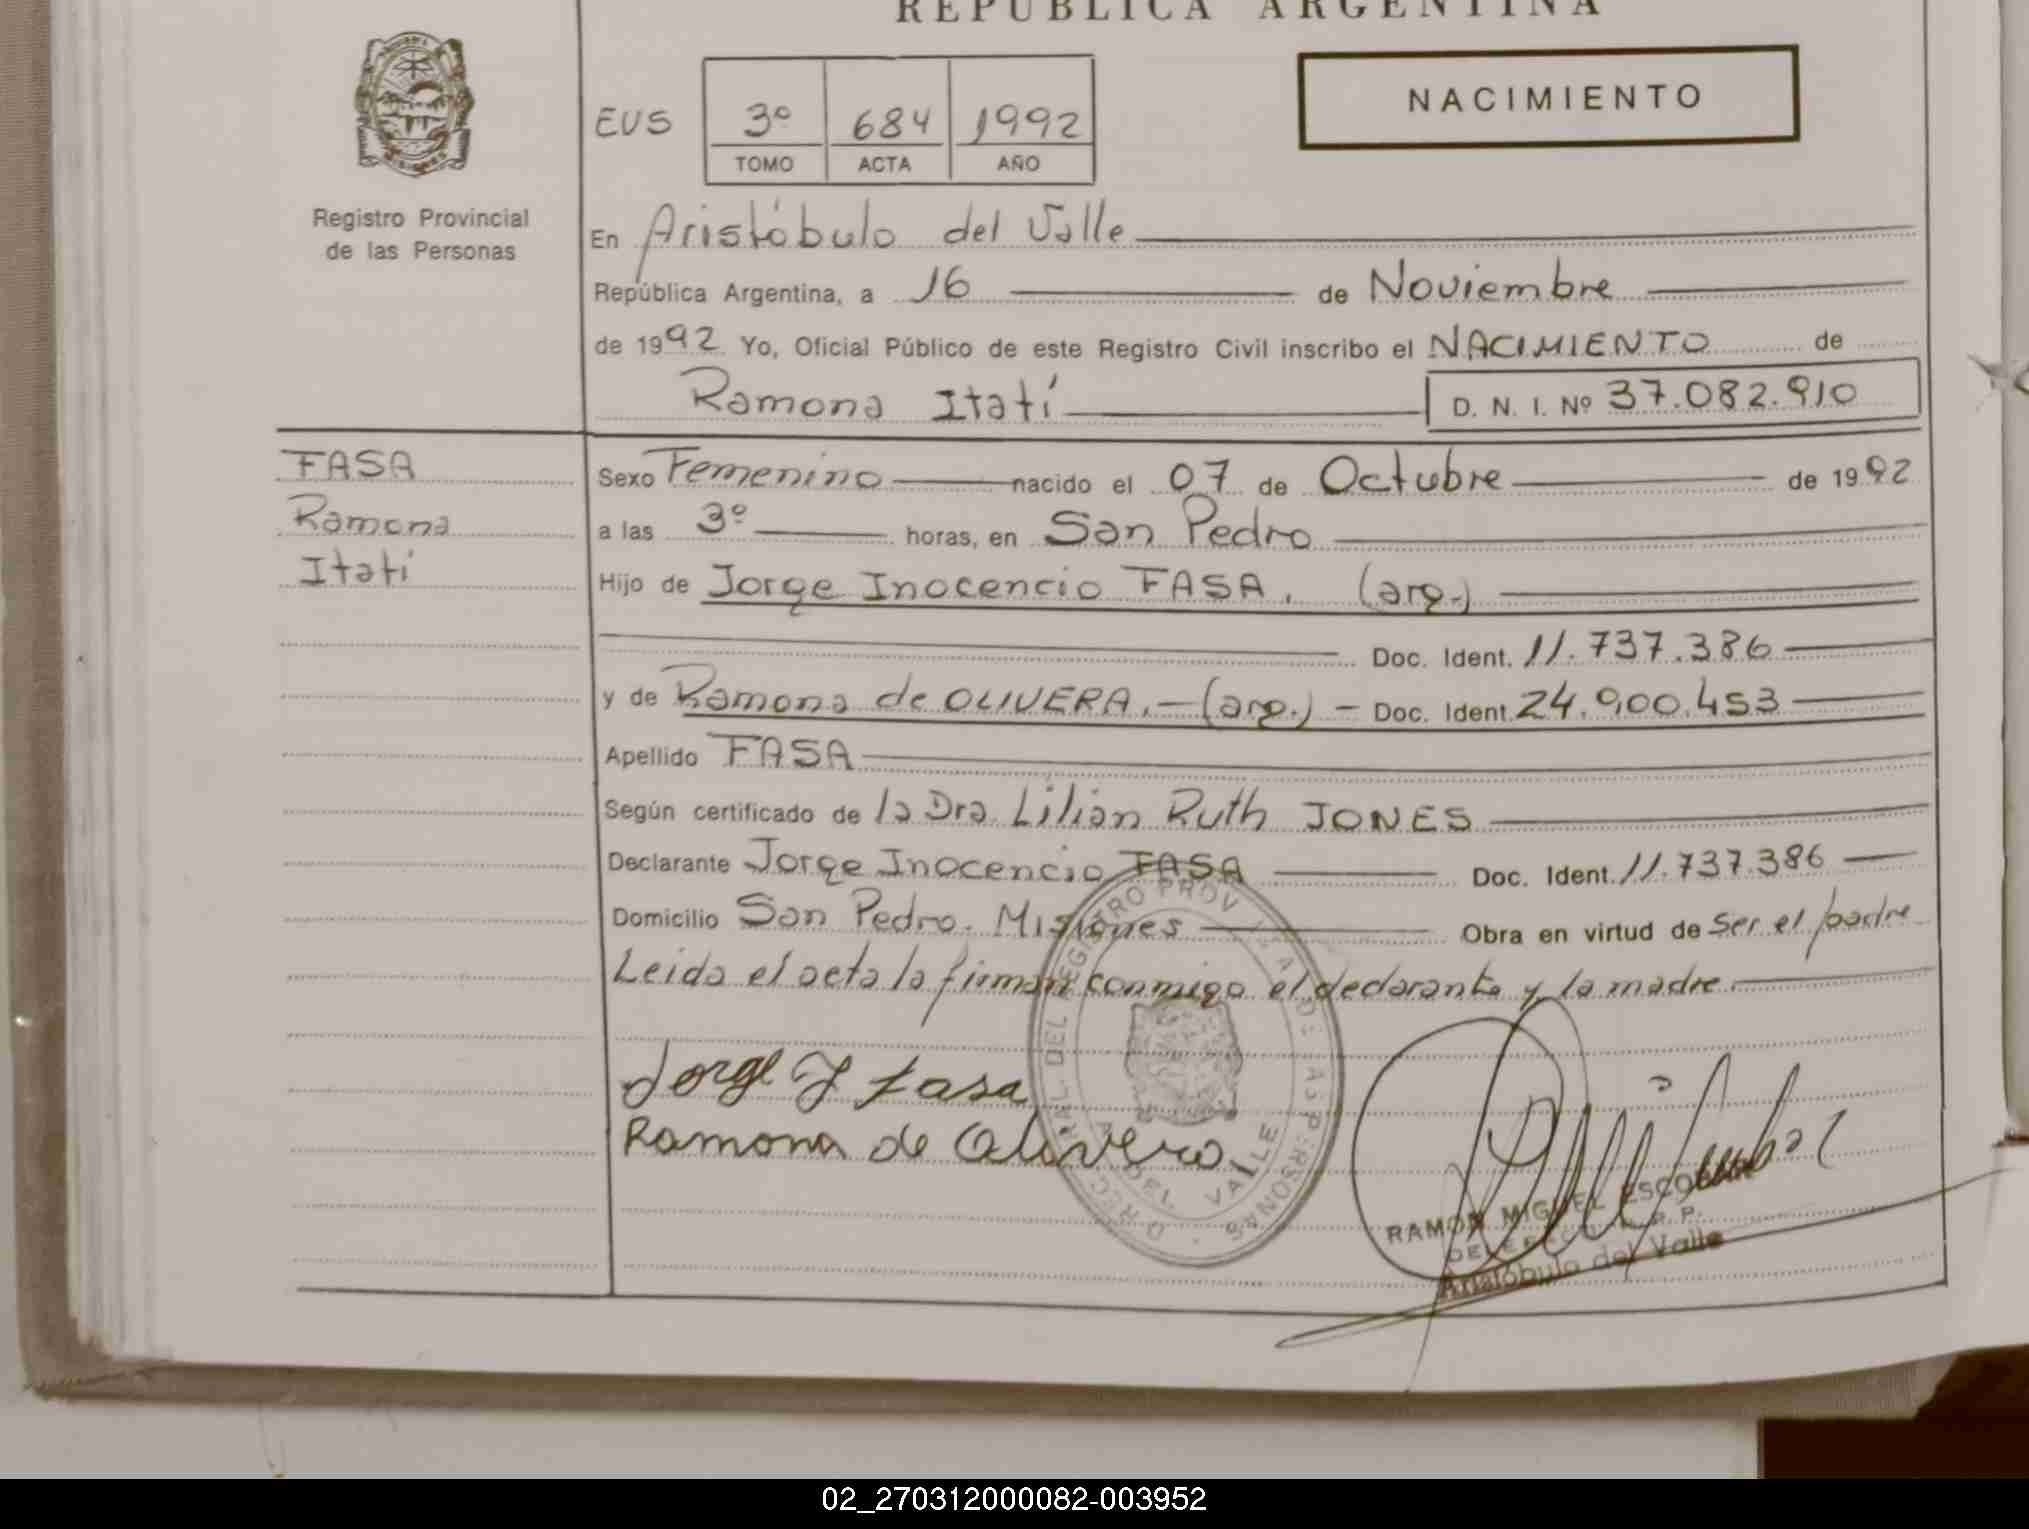 REPUBLICA ARGENTINA
NACIMIENTO
EUS 3º 684 1992
TOMO ACTA AÑO
Registro Provincial
de las Personas
En Aristóbulo del Valle
República Argentina, a 16 de Noviembre
de 1992 Yo, Oficial Público de este Registro Civil inscribo el NACIMIENTO de
Ramona Itatí D. N. I. Nº 37.082.910
FASA
Ramona
Itatí
Sexo Femenino nacido el 07 de Octubre de 1992
a las 3º horas, en San Pedro
Hijo de Jorge Inocencio FASA. (arg.)
Doc. Ident. 11.737.386
y de Ramona de OLIVERA.- (arg.) - Doc. Ident. 24.900.453
Apellido FASA
Según certificado de la Dra. Lilian Ruth JONES
Declarante Jorge Inocencio FASA Doc. Ident. 11.737.386
Domicilio San Pedro. Misiones Obra en virtud de ser el padre
Leida el acta la firman conmigo el declarante y la madre.
Jorge I fasa
Ramona de Olivera
DEL REGISTRO PROV DE LAS PERSONAS
DEL VALLE
RAMON MIGUEL ESCOBAR
R. P.
Aristóbulo del Valle
02_270312000082-003952